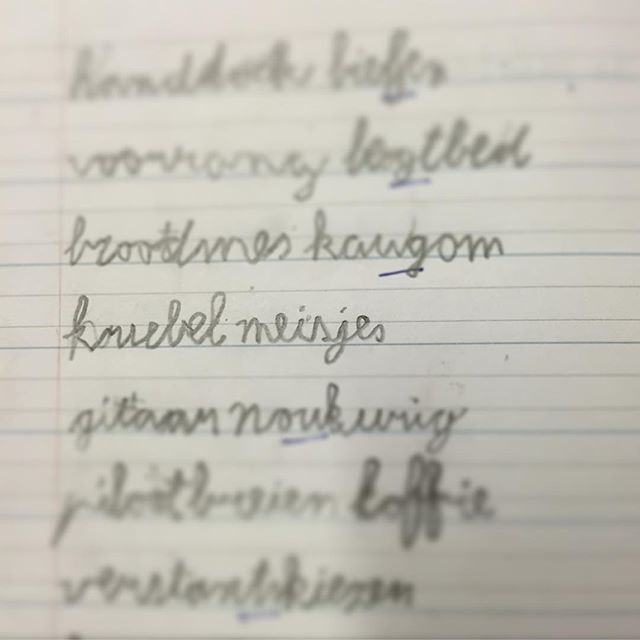 handdoek biefen
voorrang logtbed
broodmes kaugom
knuebel meisjes
gitaar noukurig
piloot breien koffie
verstants kiezen